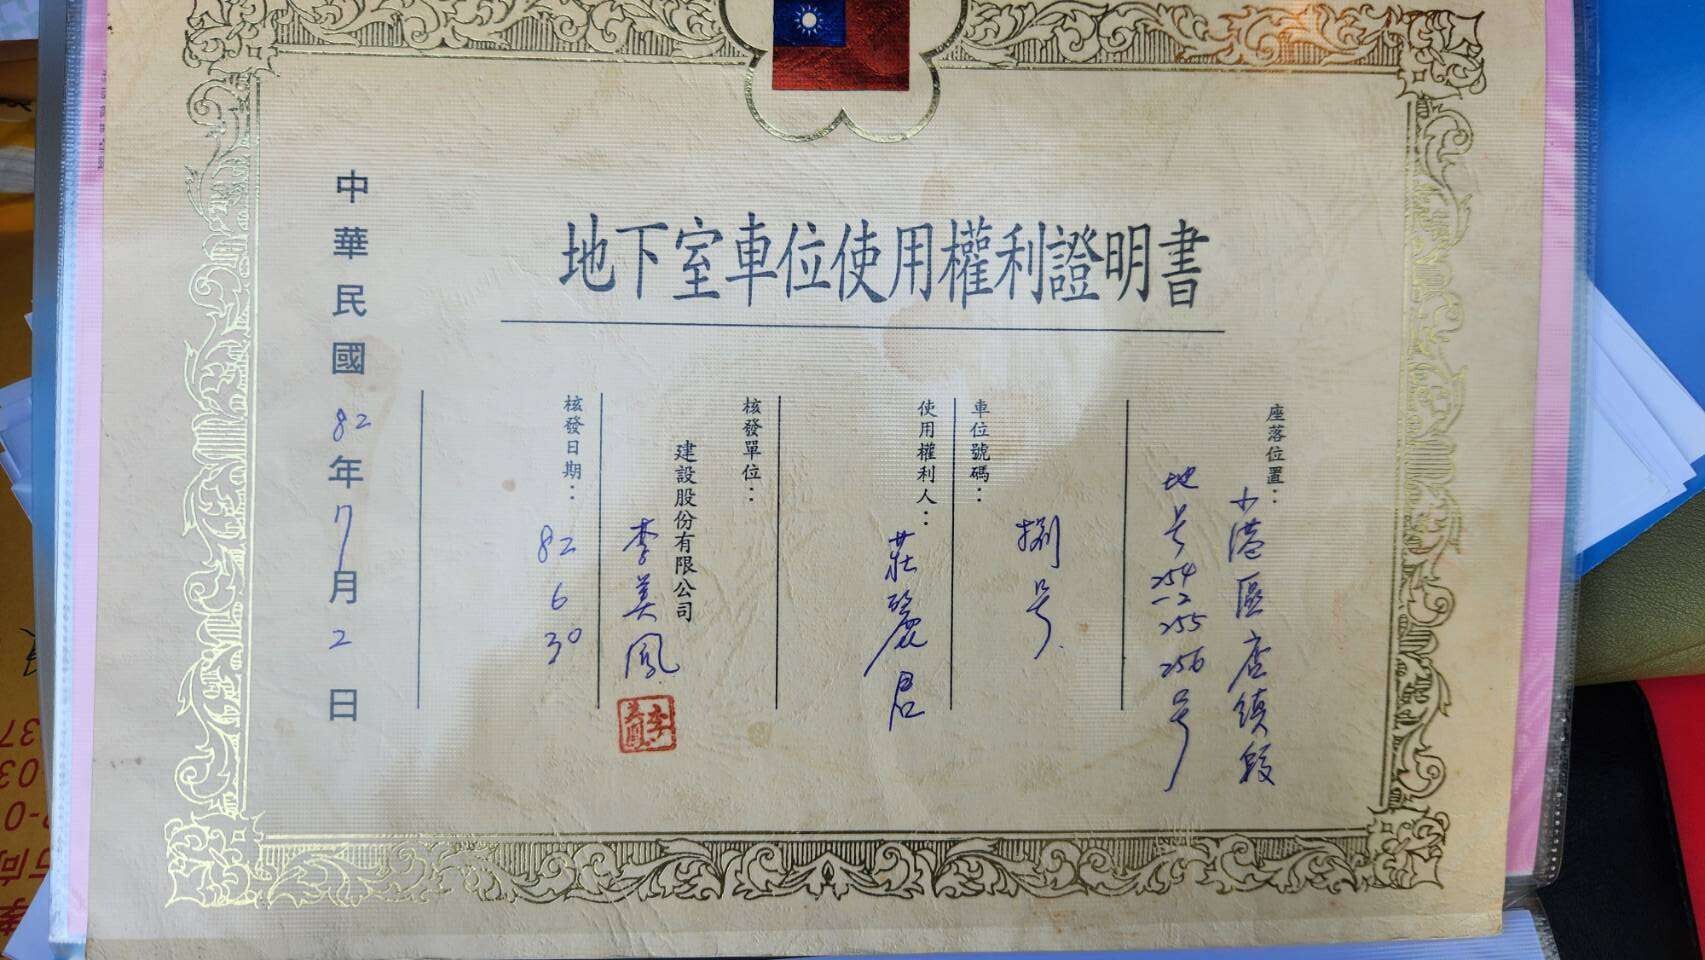 地下室車位使用權利證明書
座落位置：
小港區店鎮段
地号254-2 255 256号
車位號碼：
捌号
使用權利人：
莊麗君
核發單位：
建設股份有限公司
李美鳳
李美鳳
核發日期：
82 6 30
中華民國82年7月2日